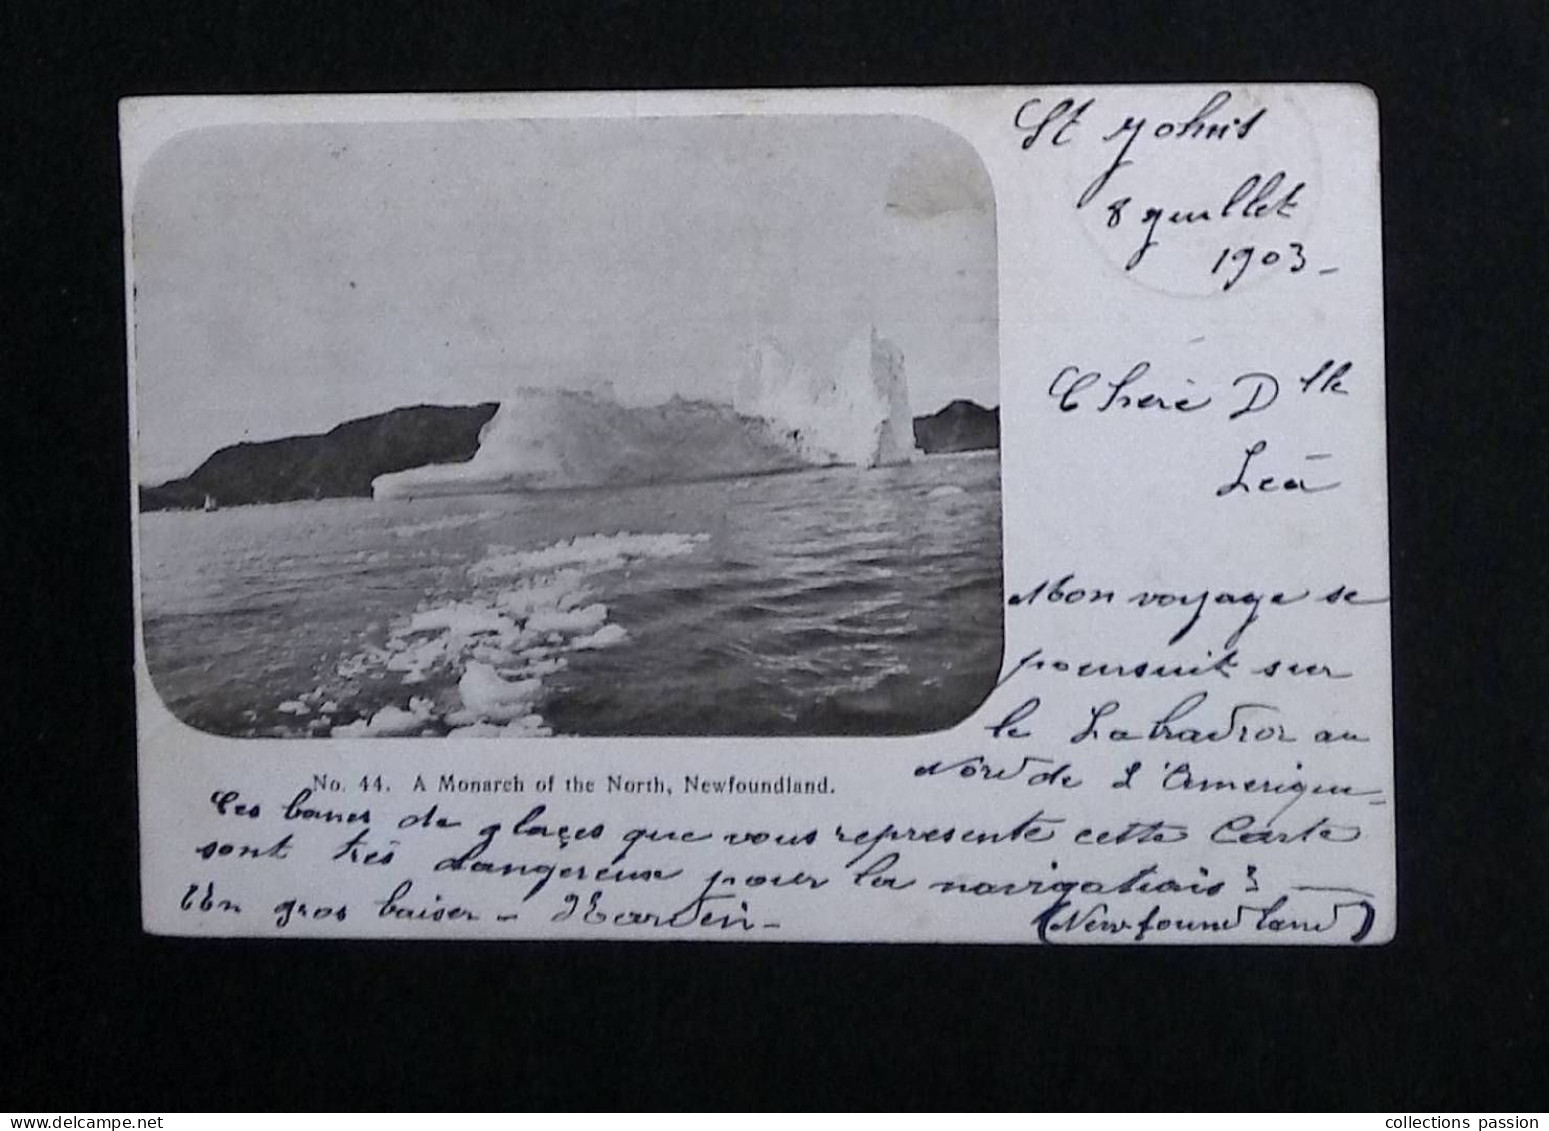 St Johns
8 Juillet
1903 -
Chère Dlle
Léa
Mon voyage se
poursuit sur
le Labrador au
Nord de l'Amerique
No. 44. A Monarch of the North, Newfoundland.
Ces bancs de glaçes que vous représente cette Carte
sont très dangereux pour la navigation
Un gros baiser -
(Newfoundland)
collections passion